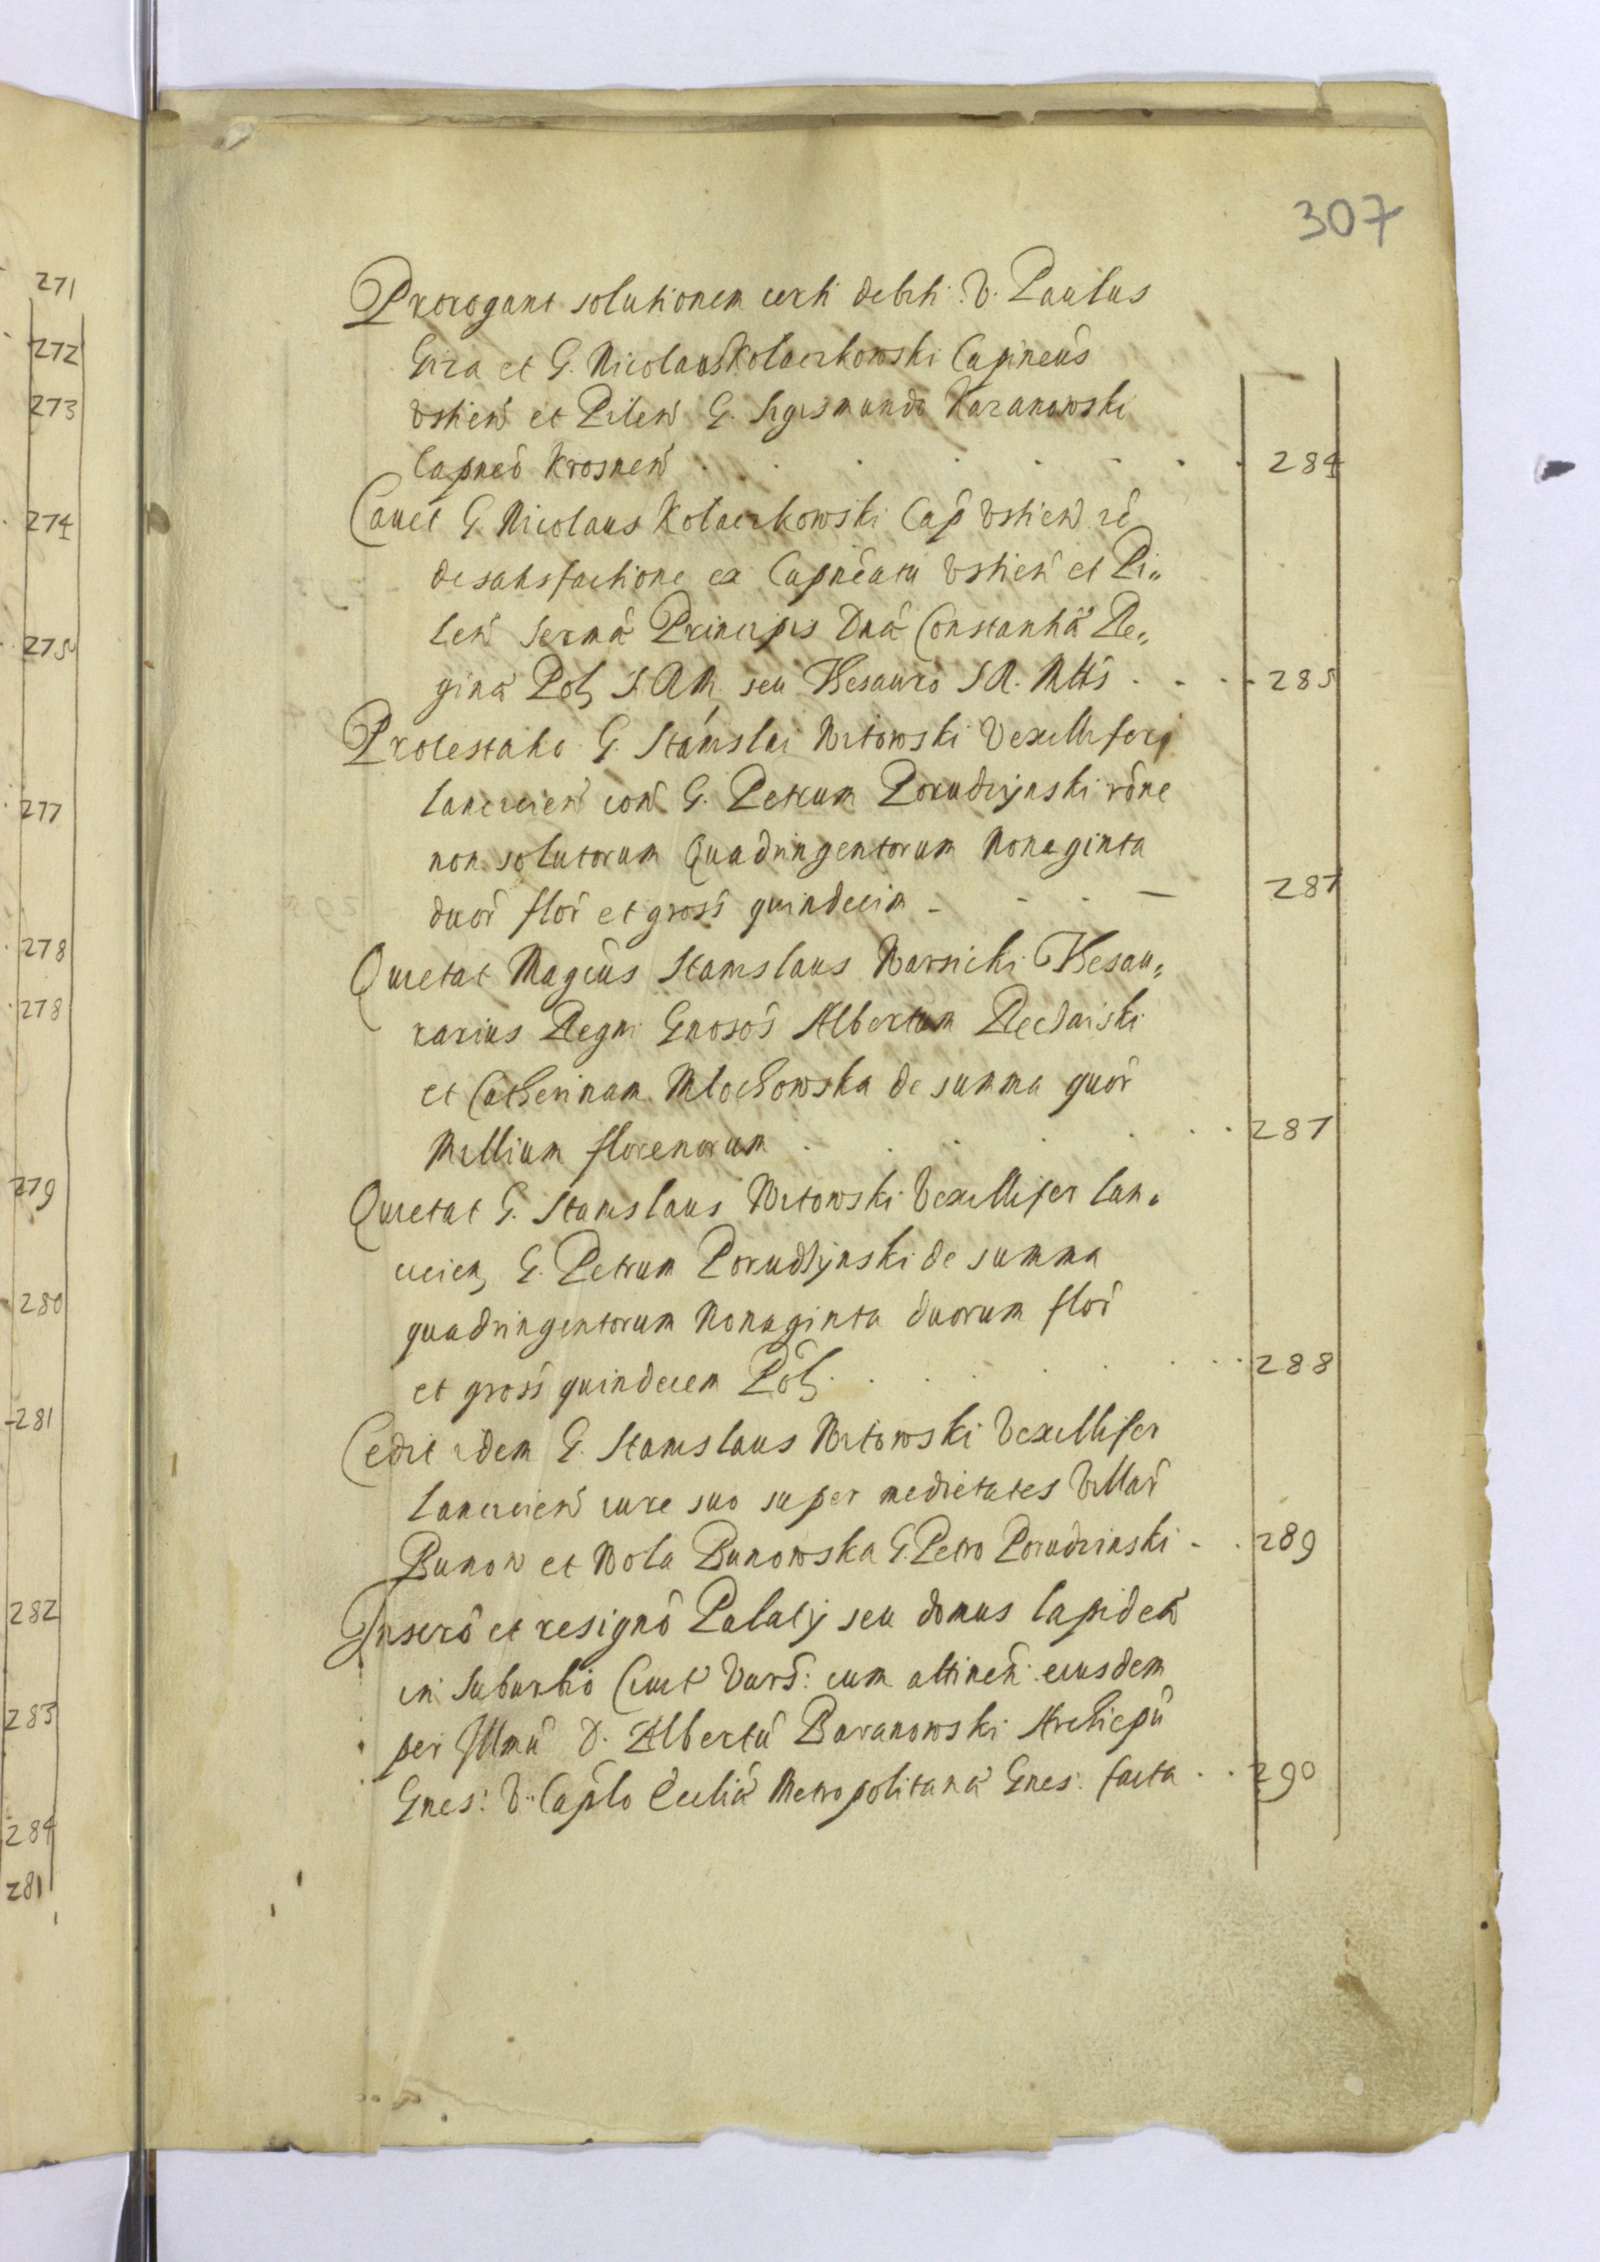 271
272
273
274
275
277
278
278
279
280
281
282
283
284
281
307
Prorogant solutionem certi debiti V. Paulus
Giza et G. Nicolaus Kolaczkowski Capineus
Vstien et Pilen G. Sigismundo Kazanowski
Capneo Krosnen . . . . . . . 284
Cavet G. Nicolaus Kolaczkowski Cap Vstien re
de satisfactione ex Capneatu Vstien et Pi„
len Serma Principis Dna Constantia Re„
gina Pol S. R M. seu Thesauro S R. Mttis . . . . 285
Protestatio G. Stanislai Witowski Vexilliferi
lanciciен con G. Petrum Porudzynski rõne
non solutorum Quadringentorum Nonaginta
duor flor et gross quindecim - - . — 287
Quietat Magcus Stanislaus Warsicki Thesau„
rarius Regni Gnosos Albertum Reczaiski
et Catherinam Mlochowska de summa quor
Millium florenorum . . . . . . . 287
Quietat G. Stanislaus Witowski Vexillifer lan„
cicien G. Petrum Porudzynski de summa
quadringentorum Nonaginta duorum flor
et gross quindecem Pol . . . . . . . . 288
Cedit idem G. Stanislaus Witowski Vexillifer
lancicien iure suo super medietates Villar
Bunow et Wola Bunowska G. Petro Porudzinski . . 289
Inscro et resigno Palatij seu domus lapidea
in Suburbio Civit Vars: cum attinen: eiusdem
per Illmu D. Albertu Baranowski Archiepu
Gnes: V. Caplo Ecclia Metropolitana Gnes: facta . . 290